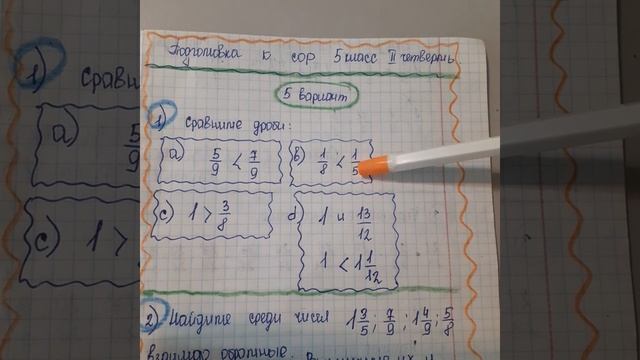 Подготовка к сор 5 класс II четверть
5 вариант
1) Сравните дроби:
a) 5/9 < 7/9 b) 1/8 < 1/5
c) 1 > 3/8 d) 1 и 13/12
1 < 1 1/12
2) Найдите среди чисел 1 3/5; 7/9; 1 4/9; 5/8
взаимно обратные.